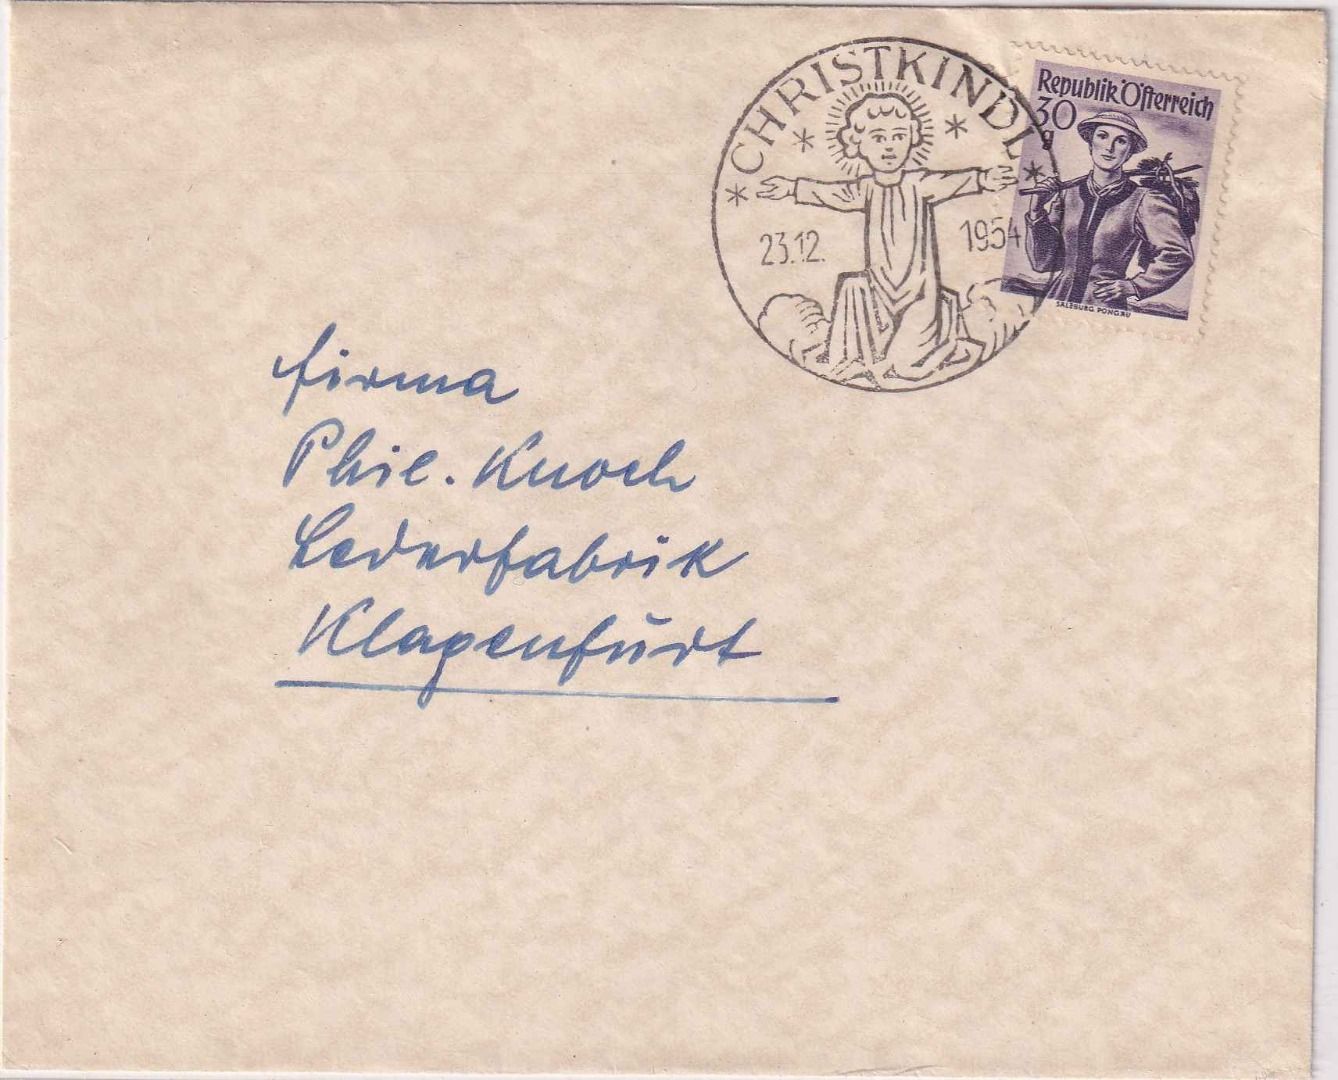 CHRISTKINDL
23.12. 1954
Republik Österreich
30
g
SALZBURG, PONGAU
Firma
Phil. Knoch
Lederfabrik
Klagenfurt